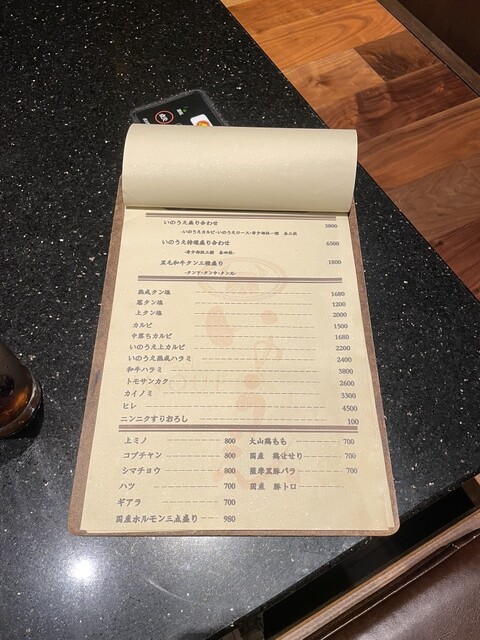 いのうえ盛り合わせ 3800
-いのうえカルビ・いのうえロース・希少部位一種 各二枚
いのうえ特選盛り合わせ 6500
-希少部位三種 各四枚-
黒毛和牛タン三種盛り 1800
-タン下・タンサキ・タンスジ-
熟成タン塩 1680
葱タン塩 1200
上タン塩 2000
カルビ 1500
中落ちカルビ 1680
いのうえ上カルビ 2200
いのうえ熟成ハラミ 2400
和牛ハラミ 3800
トモサンカク 2600
カイノミ 3300
ヒレ 4500
ニンニクすりおろし 100
上ミノ 800 大山鶏もも 700
コブチャン 800 国産 鶏せせり 700
シマチョウ 800 薩摩黒豚バラ 700
ハツ 700 国産 豚トロ
ギアラ 700
国産ホルモン三点盛り 980